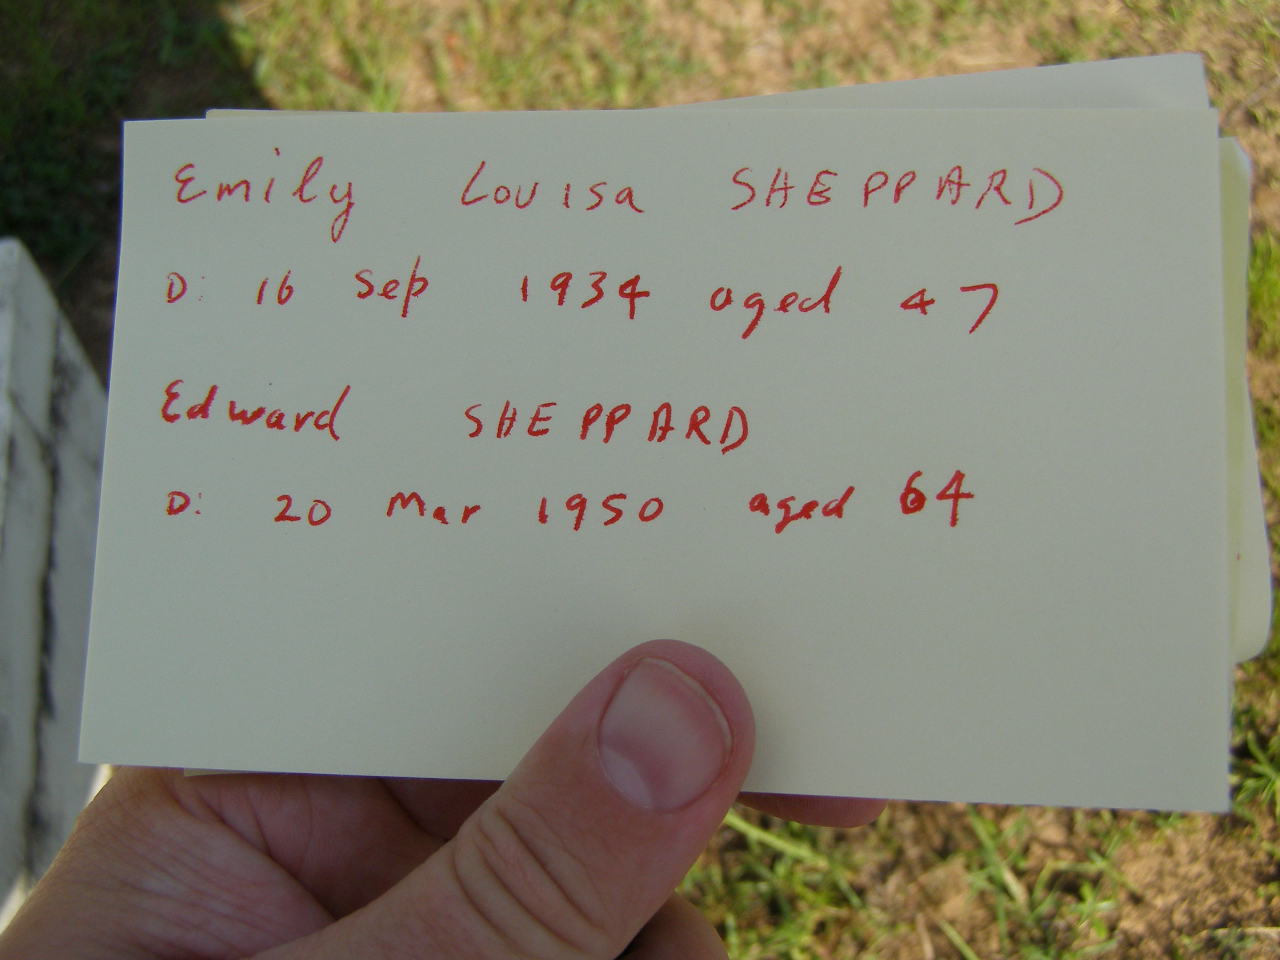 Emily Louisa SHEPPARD
D: 16 Sep 1934 aged 47
Edward SHEPPARD
D: 20 Mar 1950 aged 64